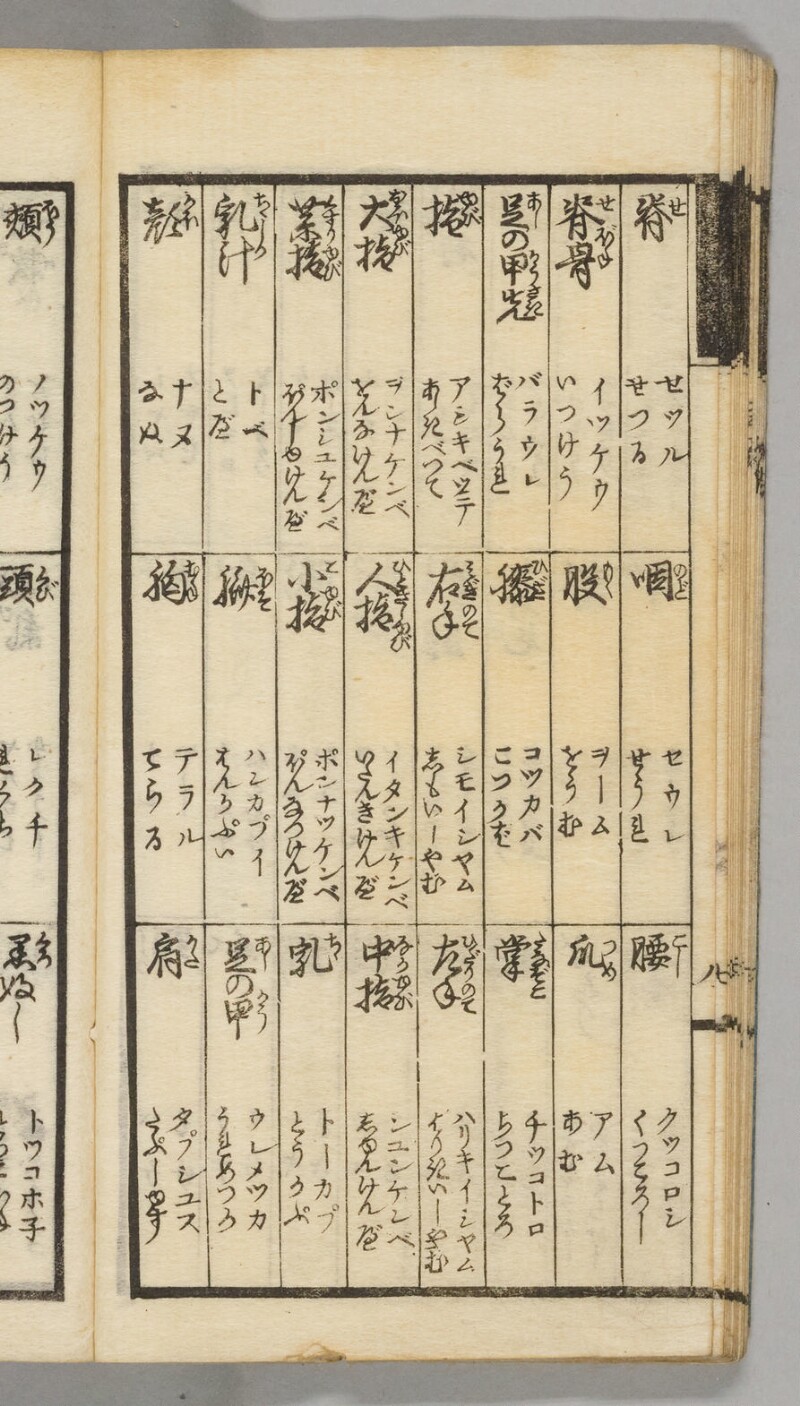 脊 せ
セツル
せつる
咽 のど
セウレ
せうれ
腰 こし
クツコロシ
くつころし
脊骨 せぼね
イツケウ
いつけう
股 もゝ
ヲーム
をうむ
爪 つめ
アム
あむ
足の甲先 あしのかうさき
バラウレ
ばらうれ
膝 ひざ
コツカバ
こつかば
掌
チツコトロ
ちつことろ
指 ゆび
アシキベツテ
あしきべつて
右手 みぎのて
シモイシヤム
しもいしやむ
左手 ひだりのて
ハリキイシヤム
はりきいしやむ
大指 おほゆび
ヲンナケンベ
をんなけんべ
人指 ひとさしゆび
イタンキケンベ
いたんきけんべ
中指 なかゆび
シユンケンベ
しゆんけんべ
菜指
ポンシユケンベ
ぽんしゆけんべ
小指 こゆび
ポンナツケンベ
ぽんなつけんべ
乳 ちゝ
トーカプ
とうかぷ
乳汁 ちゝしる
トベ
とべ
臍
ハンカプイ
はんかぷい
足の甲 あしのかう
ウレメツカ
うれめつか
顔 かほ
ナヌ
なぬ
胸 むね
テラル
てらる
肩 かた
タプシユス
たぷしゆす
八
頬 ほう
ノツケウ
のつけう
頭 くび
レクチ
れくち
トツコホ子